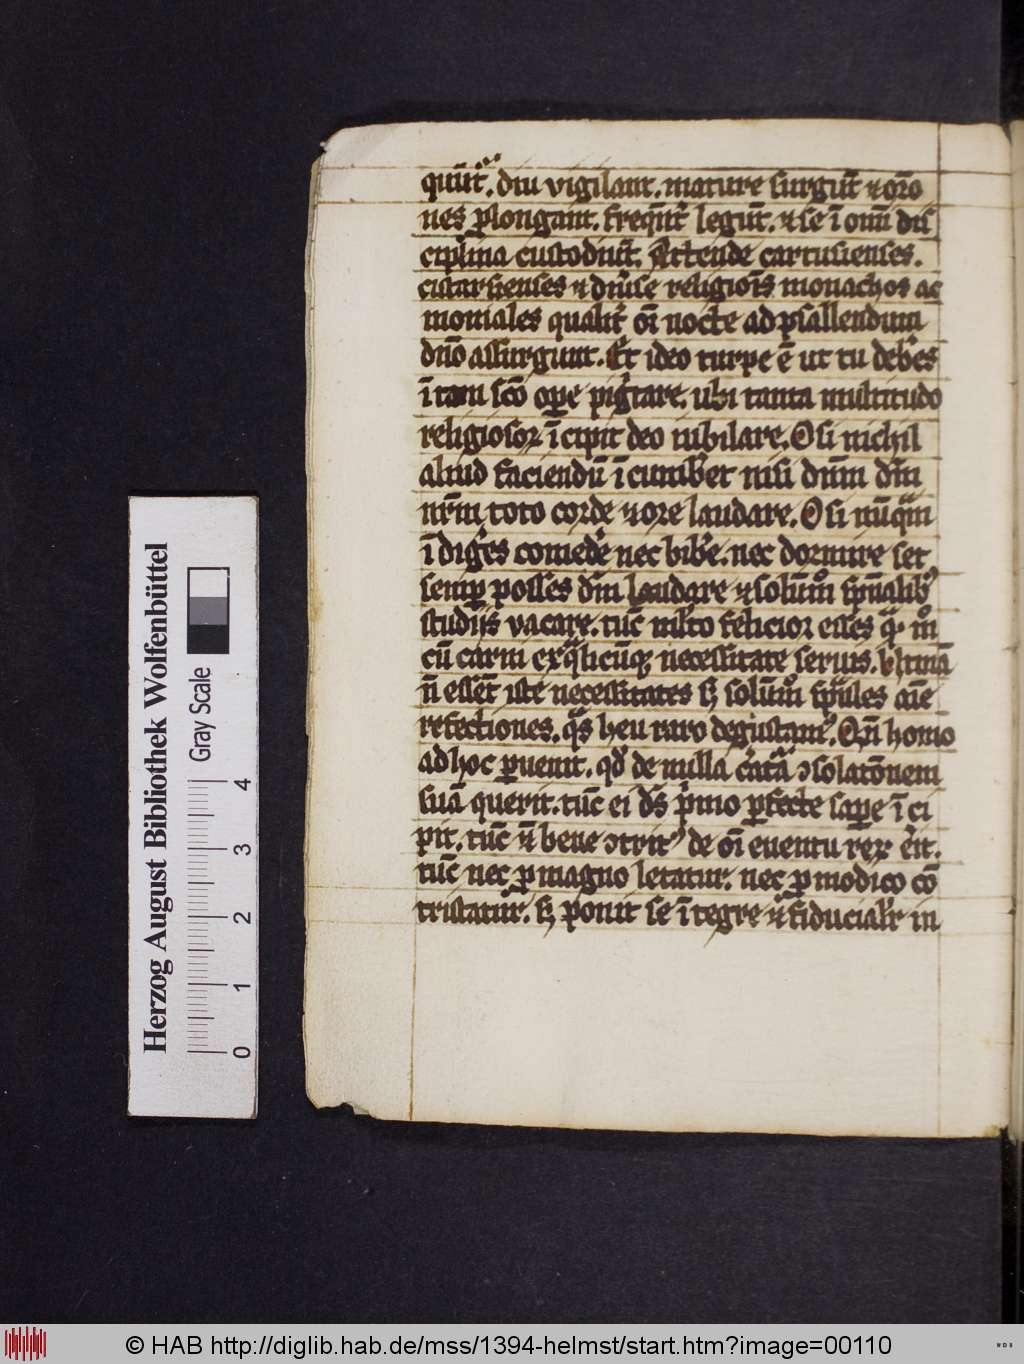 quūt͛. diu vigilant. mature surgūt ⁊ orō
nes ꝓlongant. freqūt͛ legūt. ⁊ se ī om̄i dis
ciplina custodiūt. Attende cartusienses.
cistersienses ⁊ diu͛se religiōis monachos ac
moniales qualit͛ om̄i nocte ad psallendum
dn̄o assurgunt. Et ideo turpe ē ut tu deb͛es
ī tam sc̄o oꝑe pig͛tare. ubi tanta multitudo
religiosoꝝ īcipit deo iubilare. O si nichil
aliud faciendū īcumb͛et nisi dn̄m dm̄
nr̄m toto corde ⁊ ore laudare. O si nūqͣm
īdig͛es comed͛e nec bib͛e. nec dormire set
semꝑ posses dm̄ laudare ⁊ solūmͦ sp̄ualibꝫ
studijs vacare. tūc ml̓to felicior esses qͣꝫ mͦ
cū carni exqͣlicūqꝫ necessitate seruis. Vtinā
n̄ essēt iste necessitates sꝫ solūmͦ sp̄uales aīe
refectiones. qͣs heu raro degustamꝰ. Qn̄ homo
ad hoc ꝑuenit. qd̓ de nulla c͛atͣa ↄsolatōnem
suā querit. tūc ei ds̄ p͛mo ꝑfecte sape īci
pit. tūc ēt̄ bene ↄtētꝰ de om̄i euentu reꝝ e͛it.
tūc nec ꝓ magno letatur. nec ꝓ modico cō
tristatur. sꝫ ponit se ītegre ⁊ fiducialit͛ in
Herzog August Bibliothek Wolfenbüttel
Gray Scale
0 1 2 3 4
© HAB http://diglib.hab.de/mss/1394-helmst/start.htm?image=00110